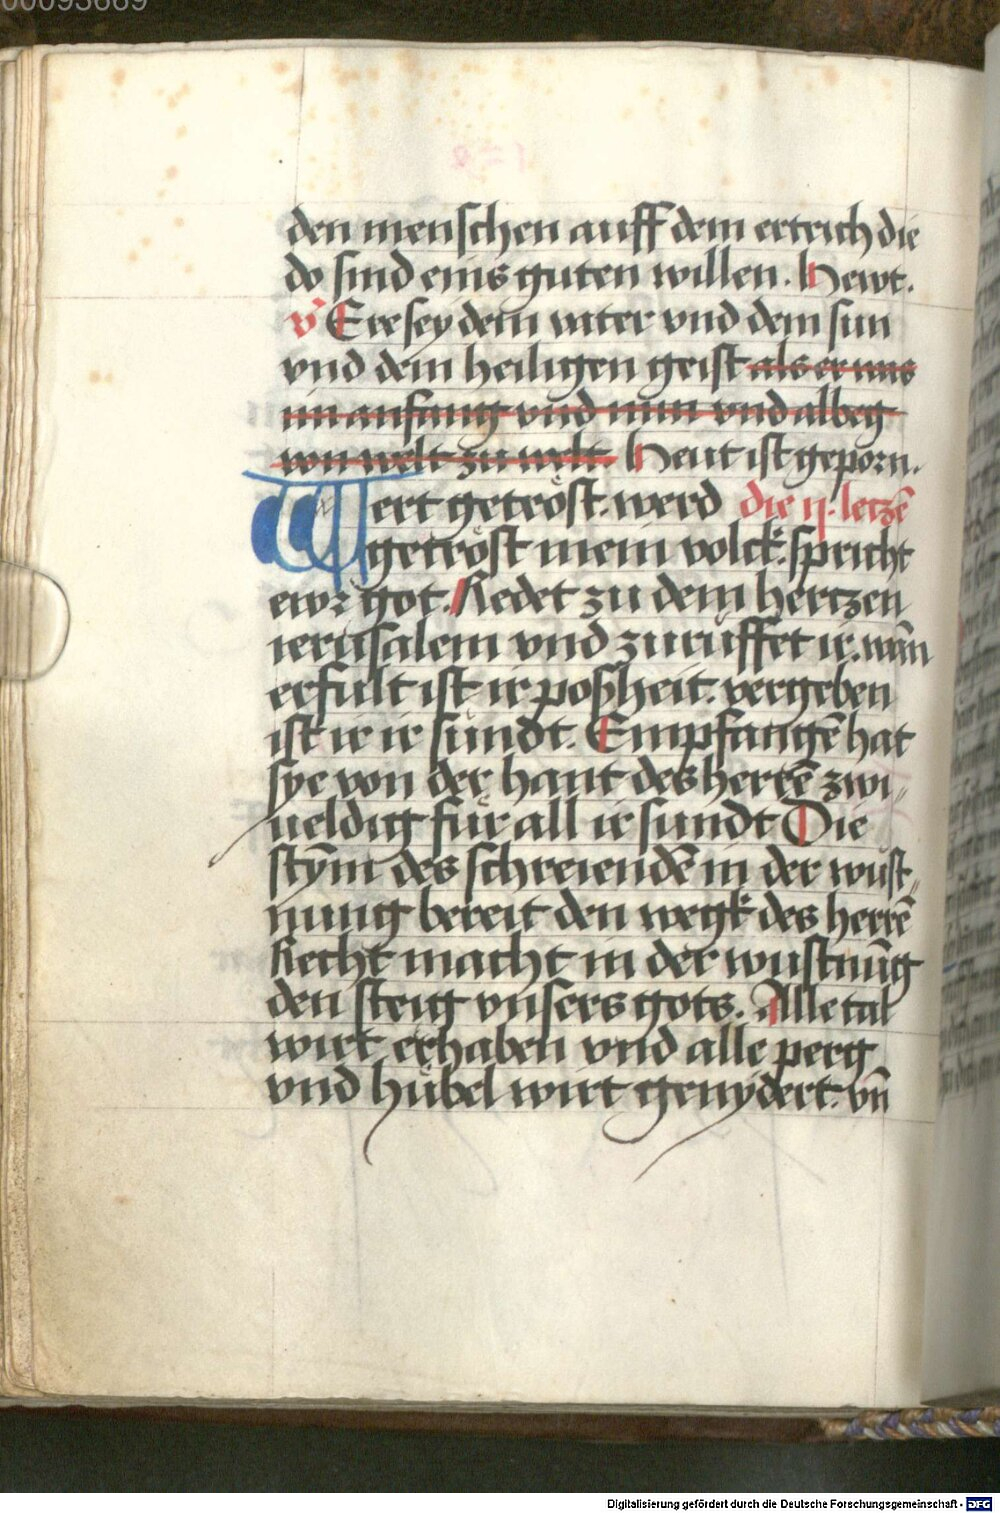 00093669
den menschen auff dem ertreich die
do sind eins guten willen. Hewt.
v̄ Ere sey dem vater vnd dem sun
vnd dem heiligen geist als er was
im anfang vnd nun vnd albeg
von welt zu welt. Heut ist geporn.
Wert getröst. werd die ij. letzē
getröst mein volck. spricht
ewr got. Redet zu dem hertzen
ierusalem vnd zurüffet ir. wān
erfult ist ir posheit. vergeben
ist ir ir sündt. Empfangē hat
sye von der hant des herrē zwi„
ueldig für all ir sundt Die
stym̄ des schreiendē in der wüst„
nung bereit den wegk des herrē
Recht macht in der wustnūg
den steig vnsers gots. Alle tal
wirt erhaben vnd alle perg
vnd hübel wirt genydert. vn̄
Digitalisierung gefördert durch die Deutsche Forschungsgemeinschaft - DFG